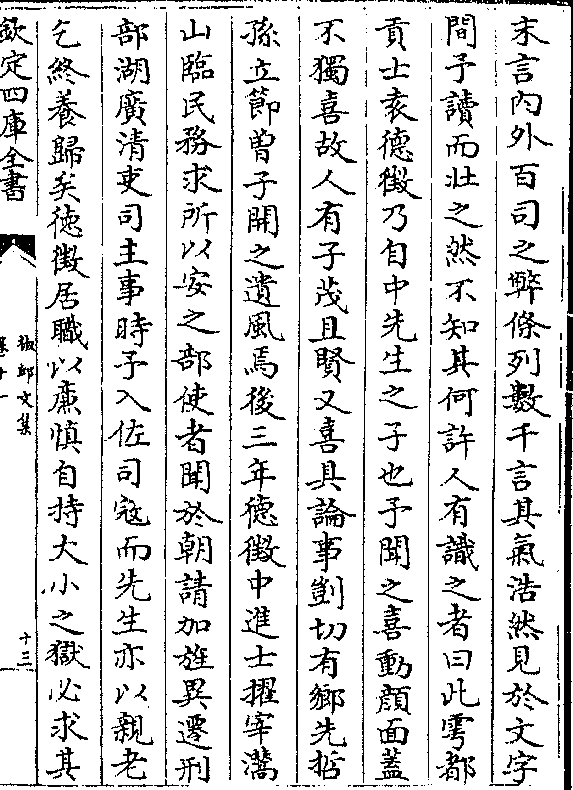 末言内外百司之弊條列數千言其氣浩然見於文字
間予讀而壯之然不知其何許人有識之者曰此雩都
貢士袁德徵乃自中先生之子也予聞之喜動顔面蓋
不獨喜故人有子茂且賢又喜其論事剴切有鄉先哲
孫立節曾子開之遺風焉後三年德徵中進士擢宰灊
山臨民務求所以安之部使者聞於朝請加旌異遷刑
部湖廣清吏司主事時予入佐司寇而先生亦以親老
乞終養歸矣德徵居職以亷慎自持大小之獄必求其
欽定四庫全書
椒邱文集
卷十一
十三